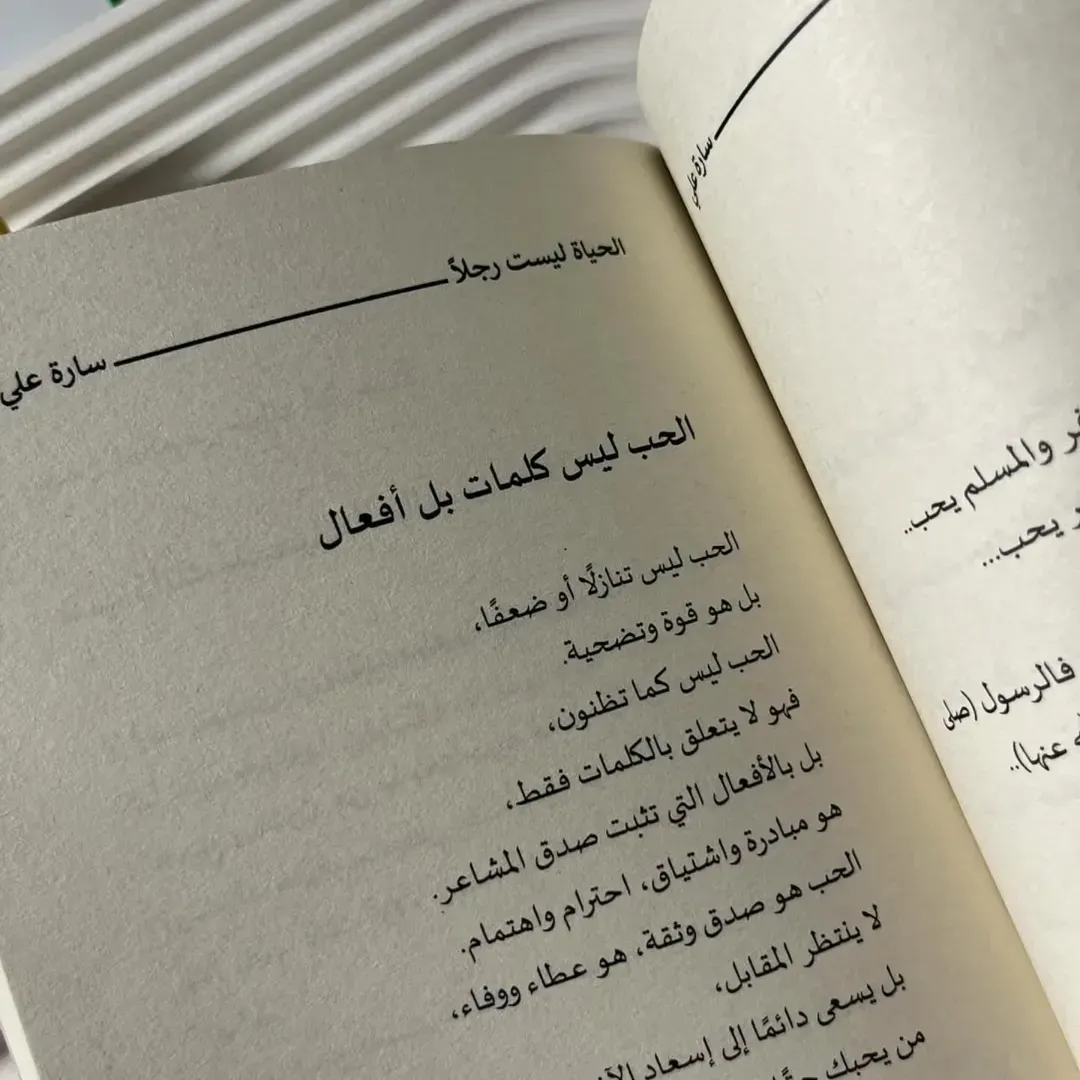 سارة علي
والمسلم يحب..
يحب...
فالرسول (صلى
عنها)..
الحياة ليست رجلاً
سارة علي
الحب ليس كلمات بل أفعال
الحب ليس تنازلًا أو ضعفًا،
بل هو قوة وتضحية.
الحب ليس كما تظنون،
فهو لا يتعلق بالكلمات فقط،
بل بالأفعال التي تثبت صدق المشاعر.
هو مبادرة واشتياق، احترام واهتمام.
الحب هو صدق وثقة، هو عطاء ووفاء،
لا ينتظر المقابل،
بل يسعى دائمًا إلى إسعاد
من يحبك